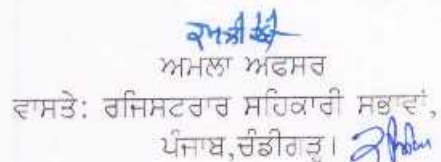 ਅਮਲਾ ਅਫਸਰ
ਵਾਸਤੇ: ਰਜਿਸਟਰਾਰ ਸਹਿਕਾਰੀ ਸਭਾਵਾਂ,
ਪੰਜਾਬ,ਚੰਡੀਗੜ੍ਹ।